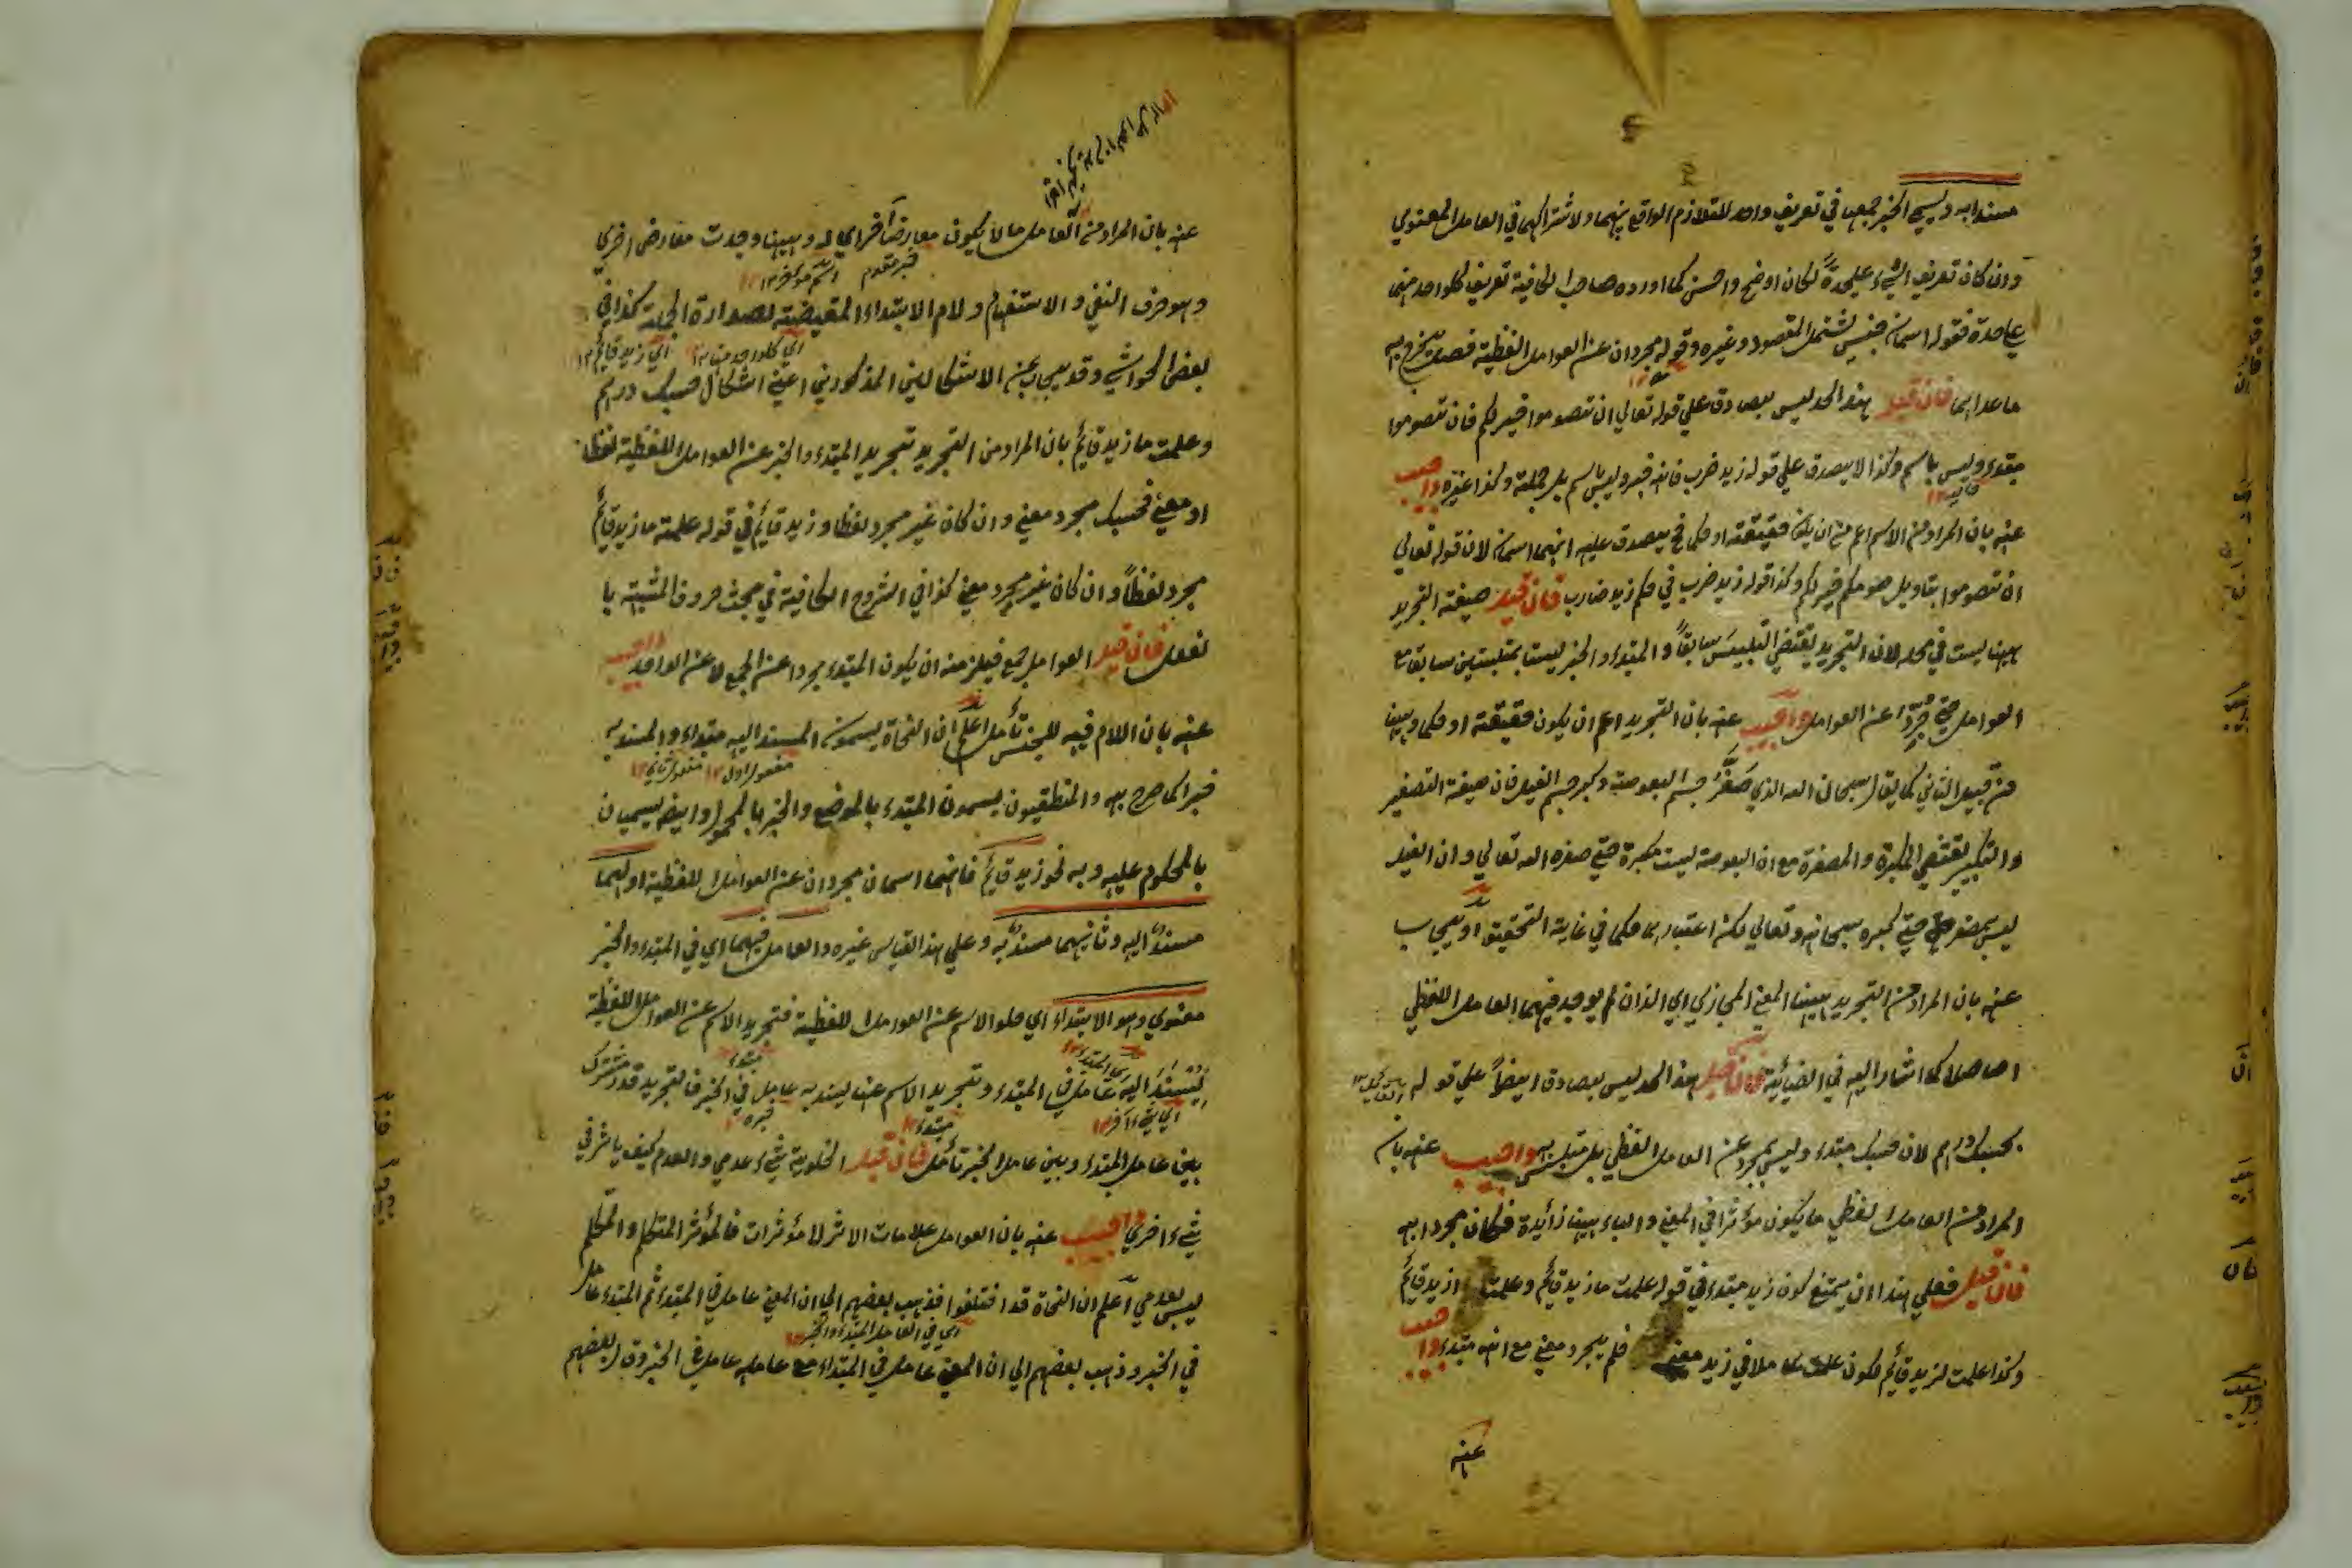 مسندا به ويسمى الخبر جمعهما في تعريف واحد للتلازم الواقع بينهما ولاشتراكهما في العامل المعنوي
وان كان تعريف الشيء عليحدة لكان اوضح واحسن كما اورده صاحب الكافية تعريف كلواحد منهما
عليحدة فقوله اسمان جنس يشتمل المقصود وغيره وقوله مجردان عن العوامل اللفظية فصل يخرج به
ما عداهما فان قيل هذا الحد ليس بصادق على قوله تعالي ان تصوموا خير لكم فان تصوموا
مبتدء وليس باسم وكذا لا يصدق علي قوله زيد ضرب فانه خبر وليس باسم بل جملة وكذا غيره واجيب
عنه بان المراد من الاسم اعم من ان يكون حقيقة او حكما فح يصدق عليه انهما اسمان لان قوله تعالي
ان تصوموا بتاويل صومكم خير لكم وكذا قوله زيد ضرب في حكم زيد ضارب فان قيل صيغة التجريد
ههنا ليست في محله لان التجريد يقتضي التلبيس سابقا والمبتدء والخبر ليستا بمتلبسين سابقا مع
العوامل حتي جردا عن العوامل واجيب عنه بان التجريد اعم ان يكون حقيقة او حكما وههنا
من قبيل الثاني كما يقال سبحان الله الذي صغر جسم البعوضة وكبر جسم الفيل فان صيغة التصغير
والتكبير يقتضي المكبرة والمصغرة مع ان البعوضة ليست مكبرة حتي صغره الله تعالي وان الفيل
ليس بمصغر حتي كبره سبحانه وتعالي لكنه اعتبارها حكما في غاية التحقيق او يجاب
عنه بان المراد من التجريد ههنا المعنى المجازي اي الذان لم يوجد فيهما العامل اللفظي
اصلا كما اشار اليه في الضيائية فان قيل هذا الحد ليس بصادق ايضا علي قولهم
بحسبك درهم لان حسبك مبتدء وليس بمجرد عن العامل اللفظي بل متلبس به واجيب عنه بان
المراد من العامل لفظي ما يكون مؤثرا في المعنى والباء ههنا زائدة فكان مجردا به
فان قيل فعلي هذا ان يمتنع كون زيد مبتدء في قوله علمت ما زيد قائم وعلمت ازيد قائم
وكذا علمت لزيد قائم لكون علمت عاملا في زيد معنى فلم يجرد معني مع انه مبتدء واجيب
عنه
عنه بان المراد من العامل ما لا يكون معارضا اخر اي له وههنا وجدت معارض اخرى
خبر مقدم اسم مؤخر ١٢
وهو حرف النفي والاستفهام ولام الابتداء المقتضية لصدارة الجملة كذا في
اي كلواحد منها ١٢ اي زيد قائم ١٢
بعض الحواشي وقد يجاب عن الاشكالين المذكورين اعني اشكال حسبك درهم
وعلمت ما زيد قائم بان المراد من التجريد تجريد المبتدء والخبر عن العوامل اللفظية لفظا
او معنى فحسبك مجرد معني وان كان غير مجرد لفظا وزيد قائم في قوله علمت ما زيد قائم
مجرد لفظا وان كان غير مجرد معني كذا في الشروح الكافية في مبحث حروف المشبهة با
لفعل فان قيل العوامل جمع فيلزمه ان يكون المبتدء مجردا عن الجمع لا عن الواحد واجيب
عنه بان اللام فيه للجنس تأمل اعلم ان النحاة يسمون المسند اليه مبتداء والمسند به
مفعول اول ١٢ مفعول ثاني ١٢
خبرا كما صرح به والمنطقيون يسمون المبتدء بالموضوع والخبر بالمحمول وايضا يسميان
بالمحكوم عليه وبه نحو زيد قائم فانهما اسمان مجردان عن العوامل اللفظية اولهما
مسند اليه وثانيهما مسند به وعلي هذا القياس غيره والعامل فيهما اي في المبتدء والخبر
معنوي وهو الابتداء اي خلو الاسم عن العوامل اللفظية فتجريد الاسم عن العوامل اللفظية
اي المبتدء ١٢ مبتدء ١٢
ليسند اليه عامل في المبتدء وتجريد الاسم عنها ليسند به عامل في الخبر فالتجريد قدر مشترك
اي شيء اخر ١٢ مبتدء ١٢ خبره
بين عامل المبتدء وبين عامل الخبر تأمل فان قيل الخلوية شيء عدمي والعدم كيف ياثر في
شيء اخري واجيب عنه بان العوامل علامات الاثر لا مؤثرات فالمؤثر المتكلم والمتكلم
ليس بعدمي اعلم ان النحاة قد اختلفوا فذهب بعضهم الي ان المعني عامل في المبتدء ثم المبتدء عامل
اي في العامل المبتدء والخبر ١٢
في الخبر وذهب بعضهم الي ان المعني عامل في المبتدء مع عامله عامل في الخبر وقال بعضهم